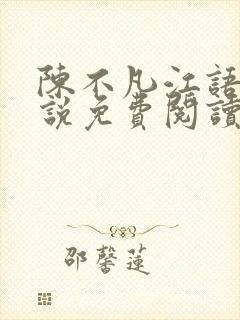 陳不凡江語
說免費閱讀
邵馨蓮